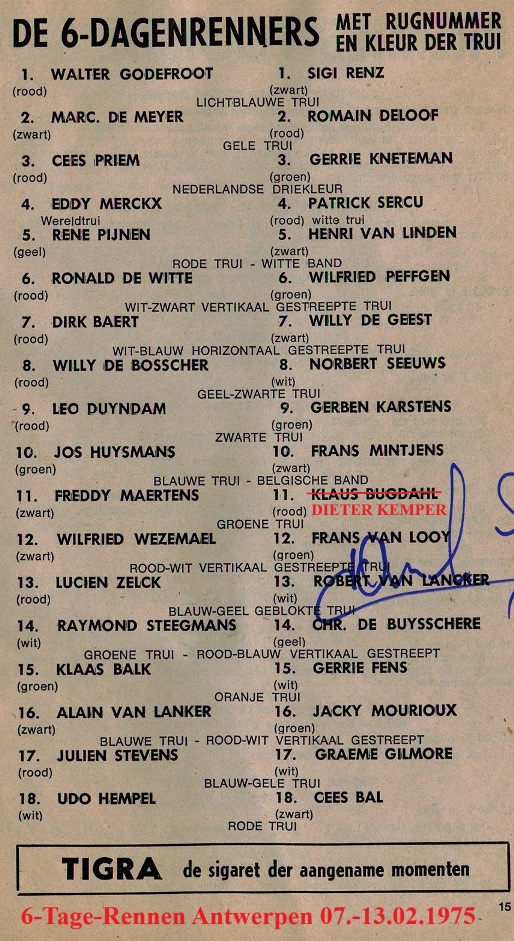 DE 6-DAGENRENNERS MET RUGNUMMER
EN KLEUR DER TRUI
1. WALTER GODEFROOT 1. SIGI RENZ
(rood) (zwart)
LICHTBLAUWE TRUI
2. MARC. DE MEYER 2. ROMAIN DELOOF
(zwart) (rood)
GELE TRUI
3. CEES PRIEM 3. GERRIE KNETEMAN
(rood) (groen)
NEDERLANDSE DRIEKLEUR
4. EDDY MERCKX 4. PATRICK SERCU
Wereldtrui (rood) witte trui
5. RENE PIJNEN 5. HENRI VAN LINDEN
(geel) (zwart)
RODE TRUI - WITTE BAND
6. RONALD DE WITTE 6. WILFRIED PEFFGEN
(rood) (groen)
WIT-ZWART VERTIKAAL GESTREEPTE TRUI
7. DIRK BAERT 7. WILLY DE GEEST
(rood) (zwart)
WIT-BLAUW HORIZONTAAL GESTREEPTE TRUI
8. WILLY DE BOSSCHER 8. NORBERT SEEUWS
(rood) (wit)
GEEL-ZWARTE TRUI
9. LEO DUYNDAM 9. GERBEN KARSTENS
(rood) (groen)
ZWARTE TRUI
10. JOS HUYSMANS 10. FRANS MINTJENS
(groen) (zwart)
BLAUWE TRUI - BELGISCHE BAND
11. FREDDY MAERTENS 11. KLAUS BUGDAHL
(zwart) (rood) DIETER KEMPER
GROENE TRUI
12. WILFRIED WEZEMAEL 12. FRANS VAN LOOY
(zwart) (groen)
ROOD-WIT VERTIKAAL GESTREEPTE TRUI
13. LUCIEN ZELCK 13. ROBERT VAN LANCKER
(rood) (wit)
BLAUW-GEEL GEBLOKTE TRUI
14. RAYMOND STEEGMANS 14. CHR. DE BUYSSCHERE
(wit) (geel)
GROENE TRUI - ROOD-BLAUW VERTIKAAL GESTREEPT
15. KLAAS BALK 15. GERRIE FENS
(groen) (wit)
ORANJE TRUI
16. ALAIN VAN LANKER 16. JACKY MOURIOUX
(zwart) (groen)
BLAUWE TRUI - ROOD-WIT VERTIKAAL GESTREEPT
17. JULIEN STEVENS 17. GRAEME GILMORE
(rood) (wit)
BLAUW-GELE TRUI
18. UDO HEMPEL 18. CEES BAL
(wit) (zwart)
RODE TRUI
TIGRA de sigaret der aangename momenten
15
6-Tage-Rennen Antwerpen 07.-13.02.1975